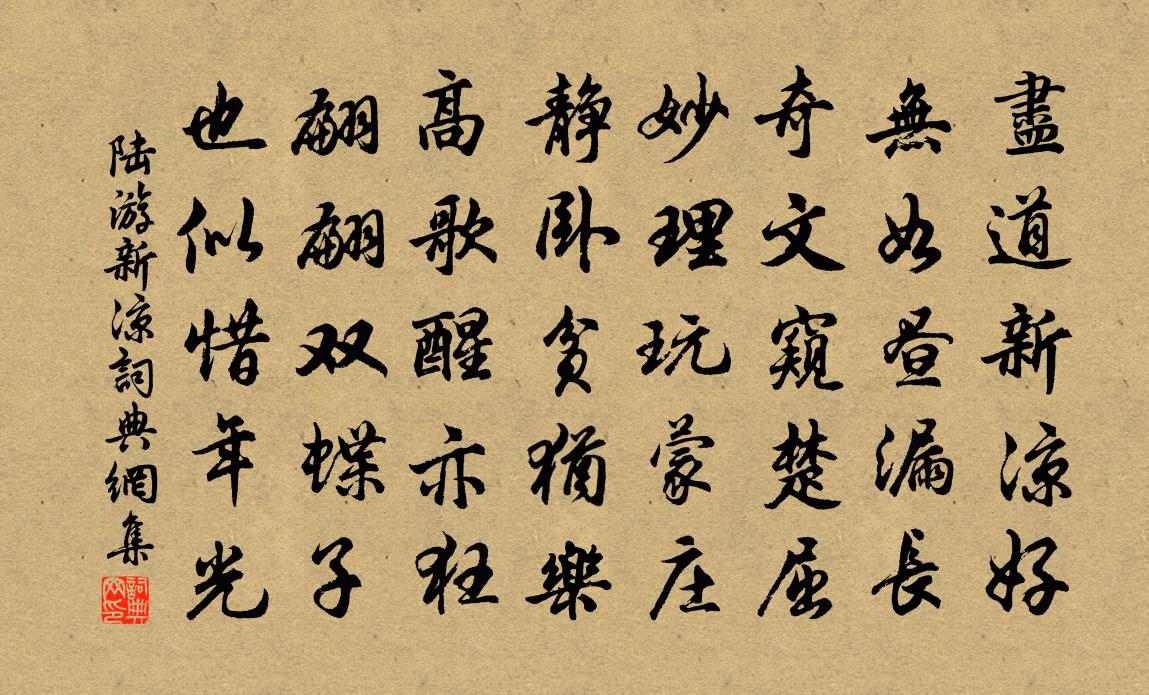 盡道新涼好
無如晝漏長
奇文窺楚屈
妙理玩蒙庄
靜臥貧猶樂
高歌醒亦狂
翩翩双蝶子
也似惜年光
陆游新涼詞典網集
詞典网印